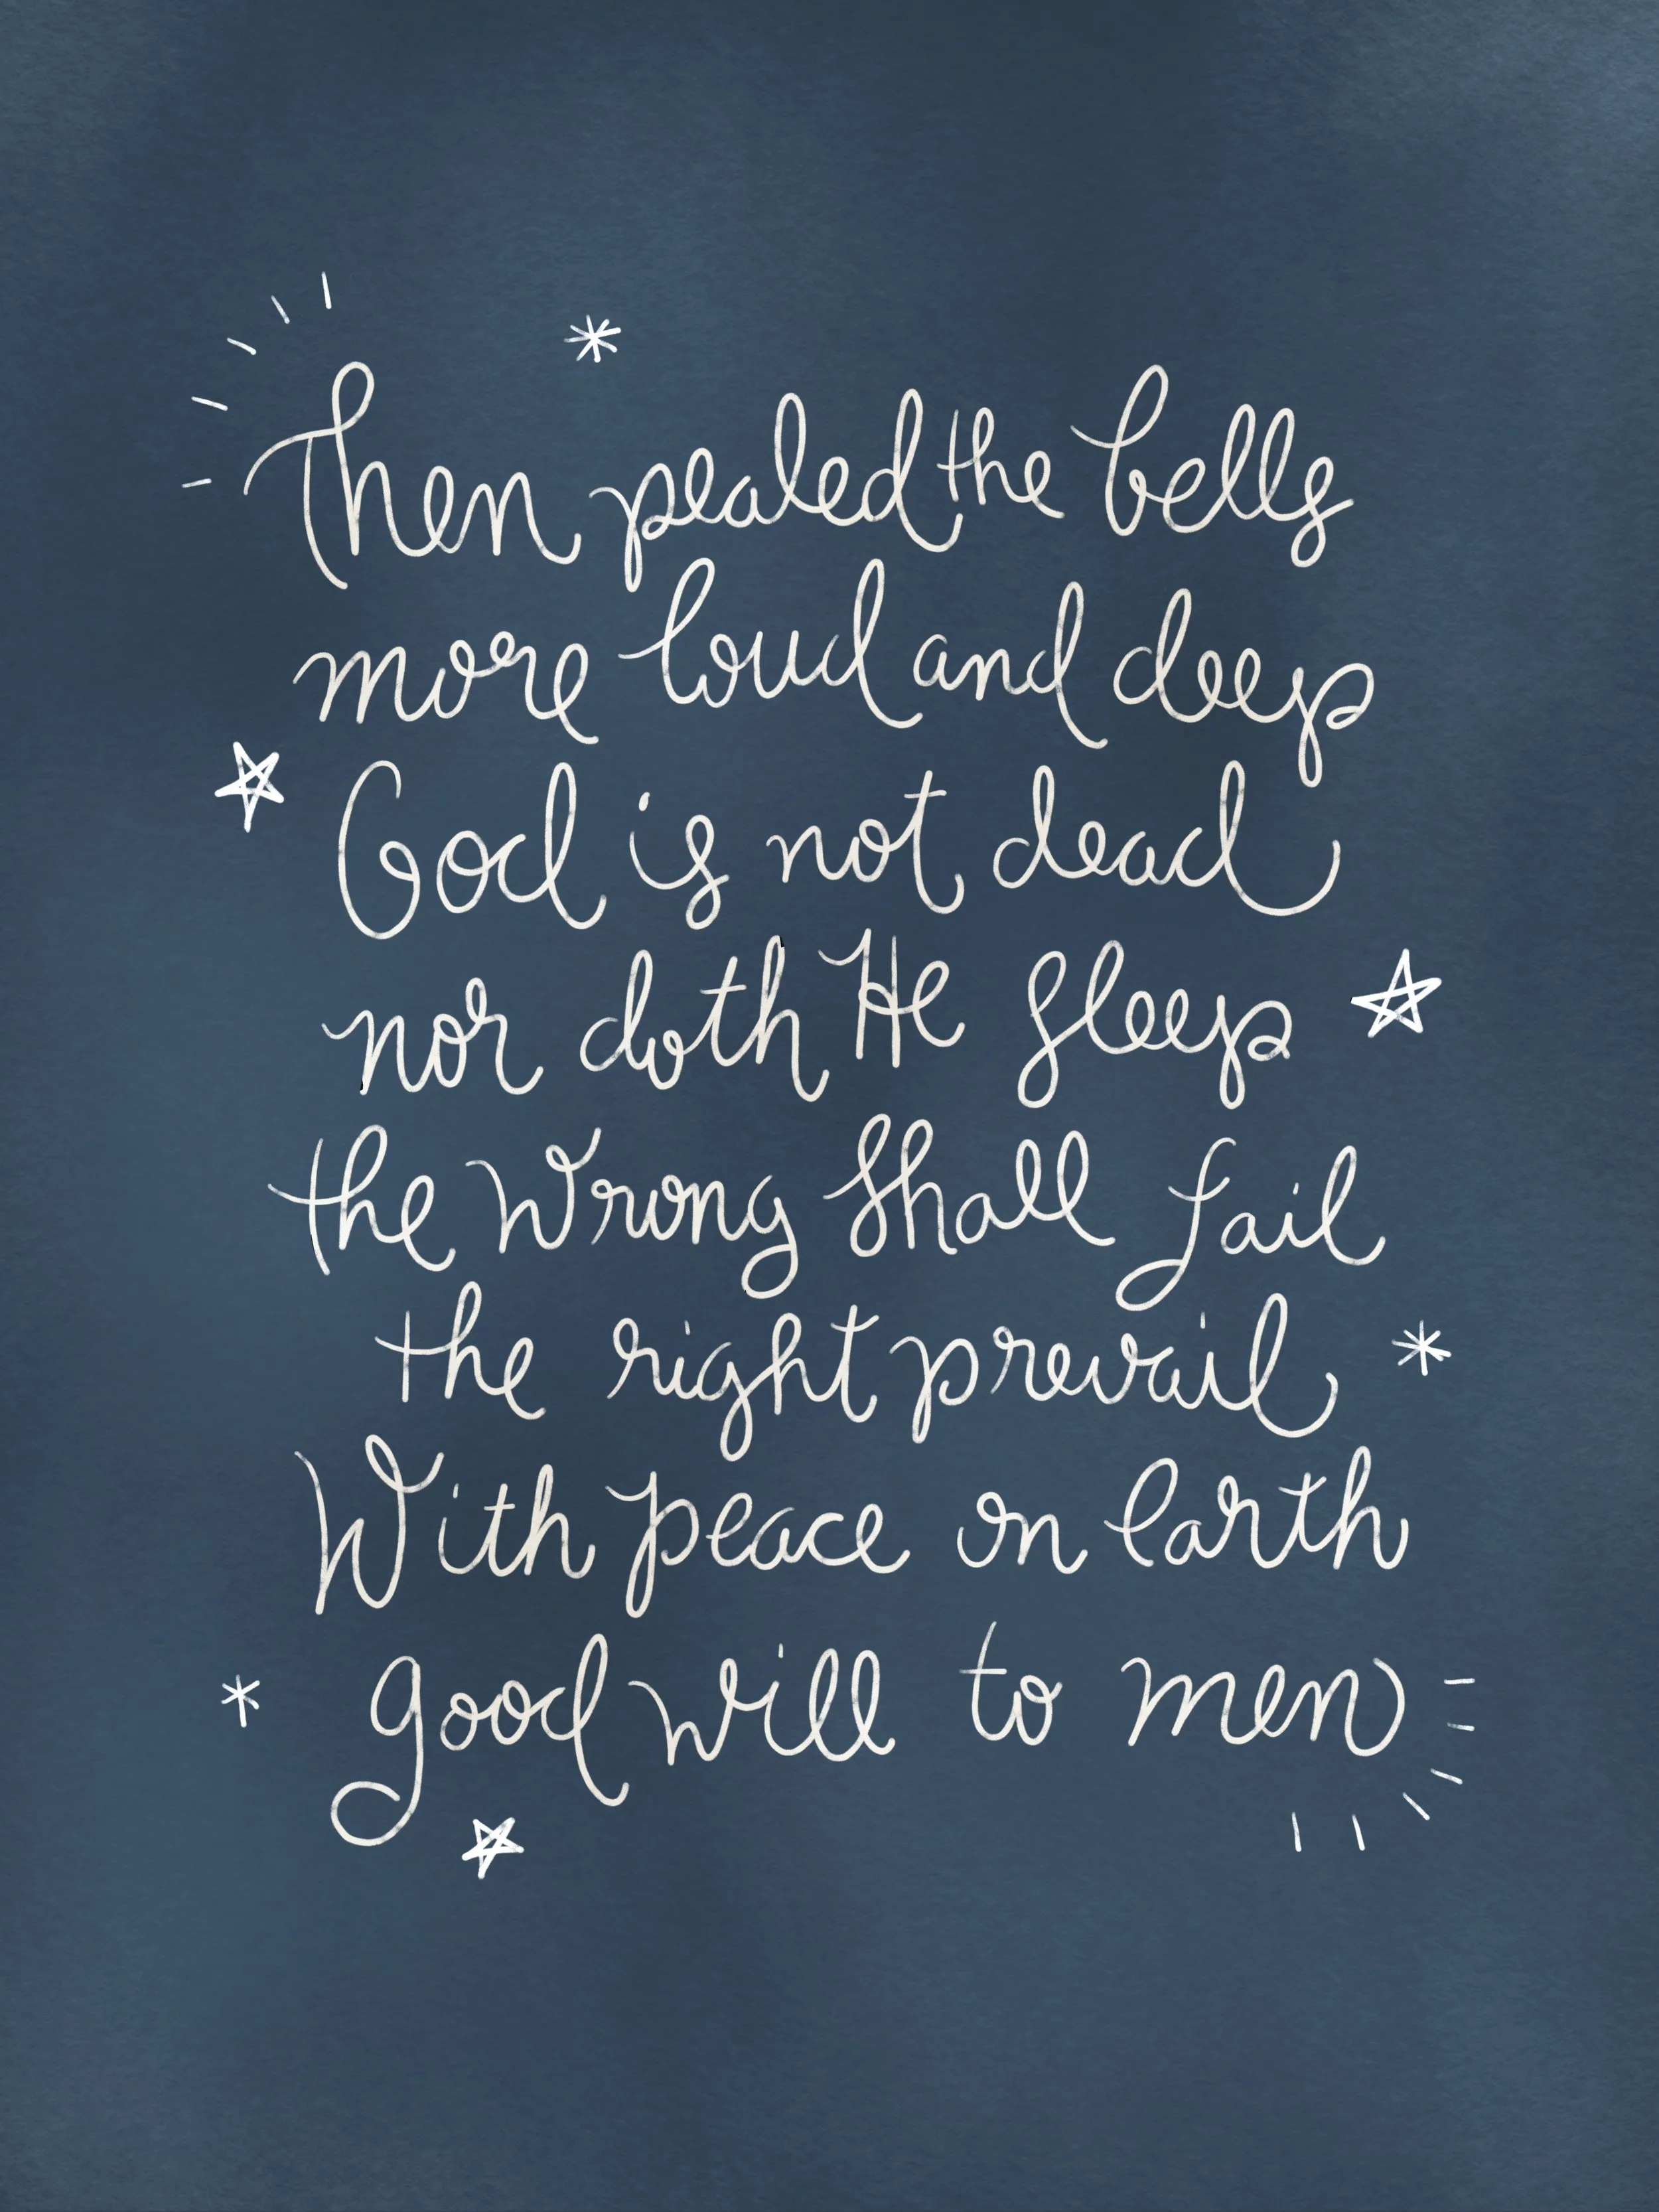 Then pealed the bells
more loud and deep
God is not dead
nor doth He sleep
the Wrong Shall fail
the right prevail
With peace on earth
good will to men